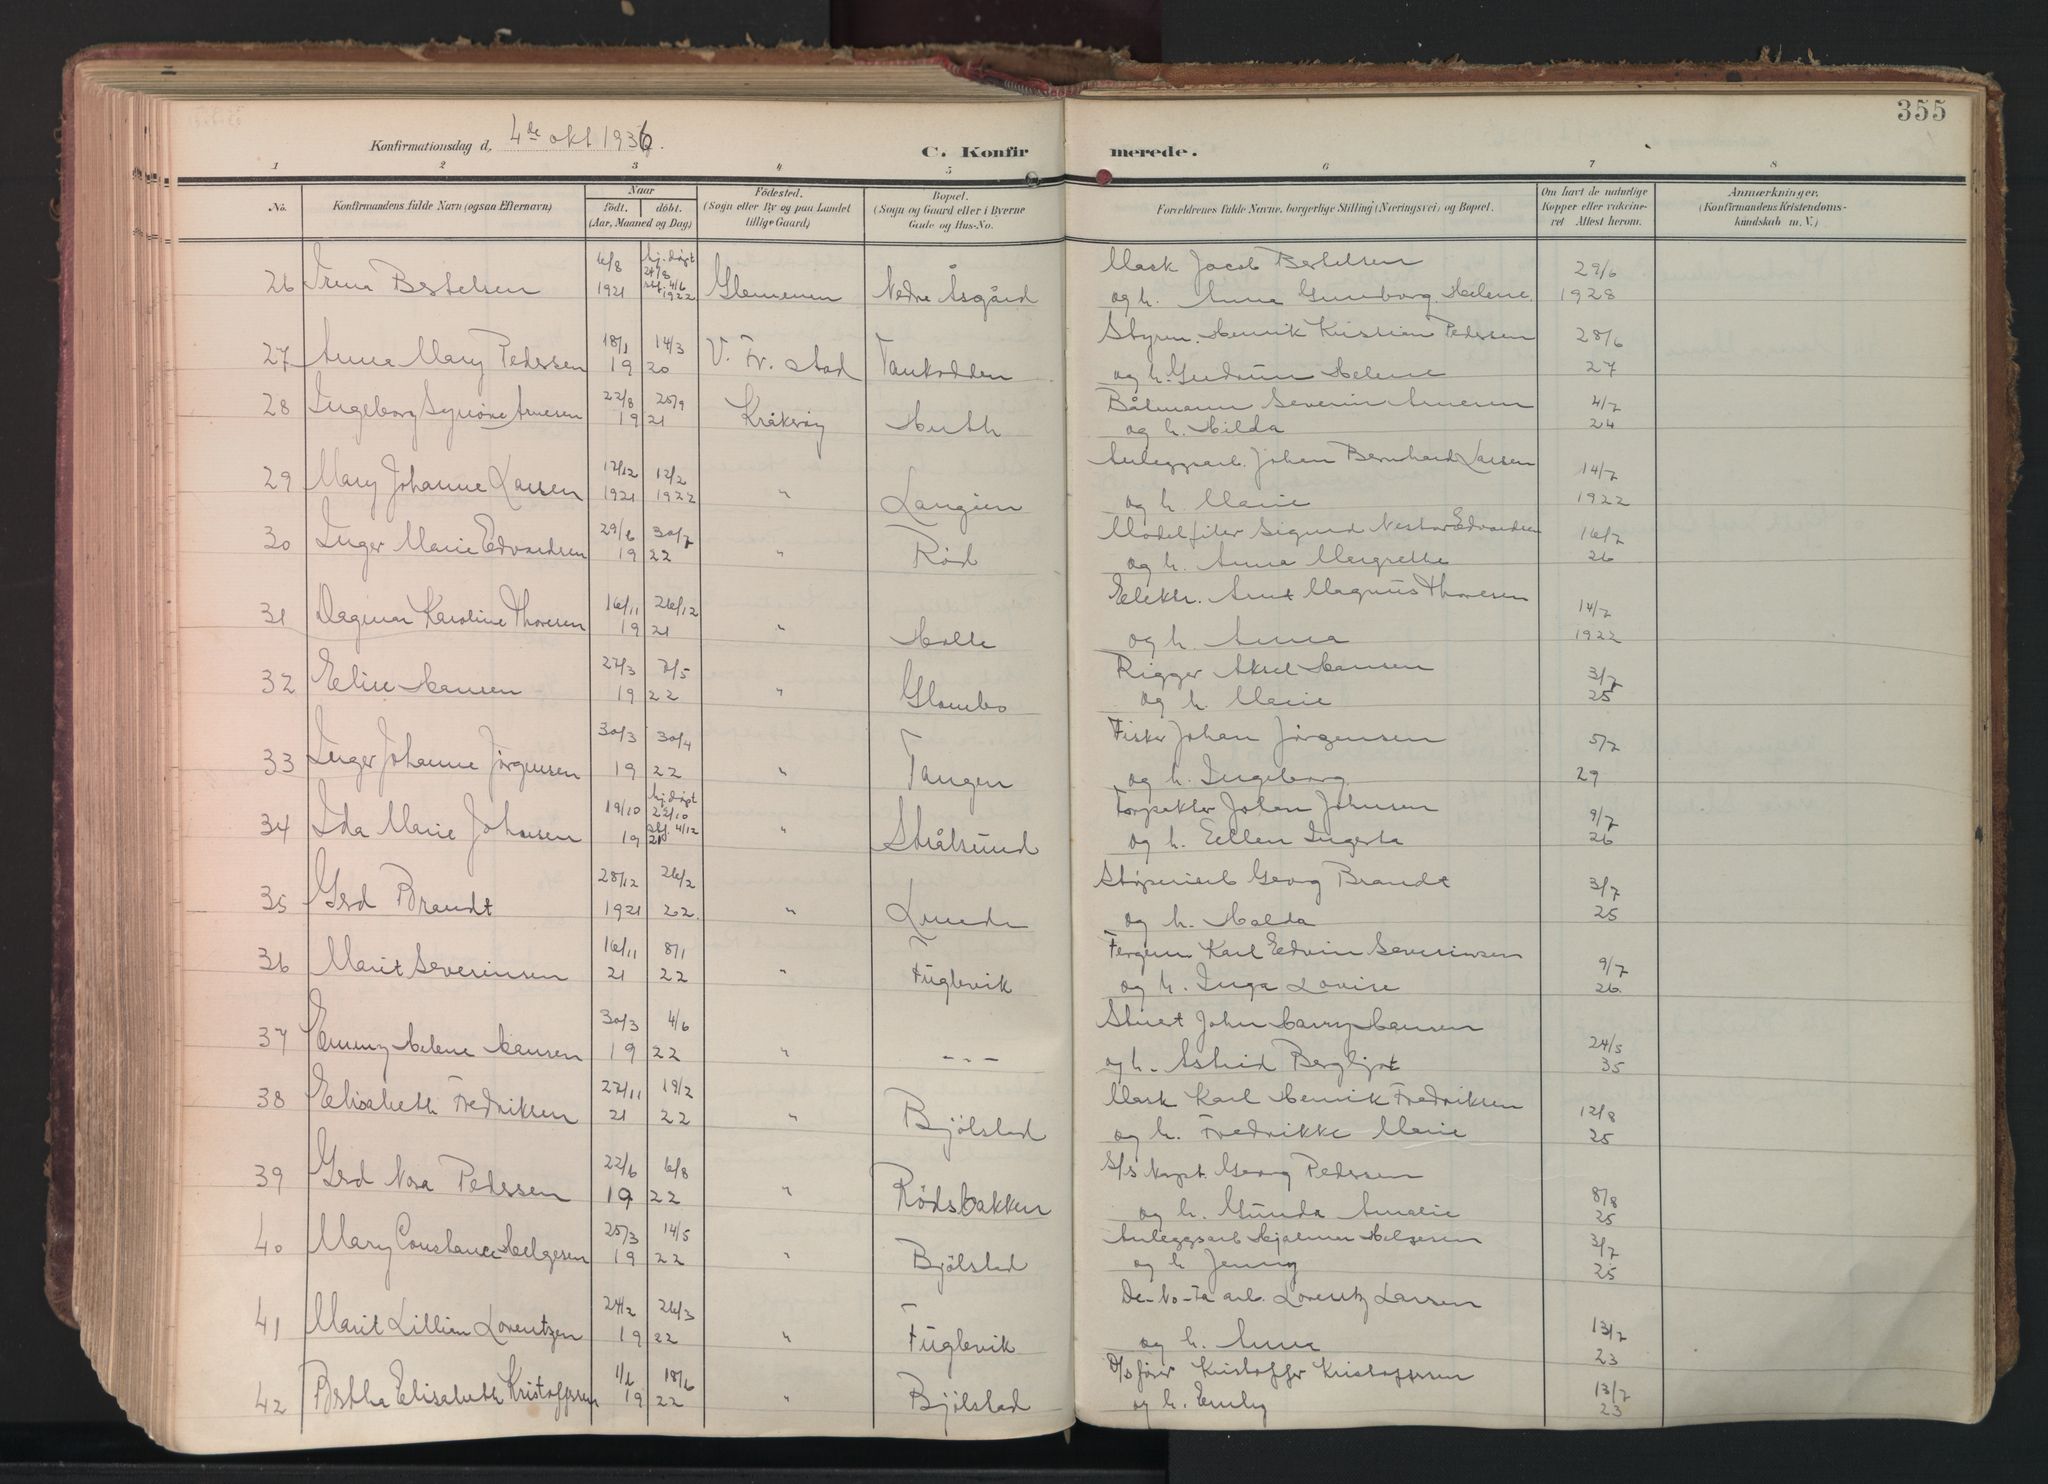 355
Konfirmationsdag d. 4de okt 1936.
C. Konfirmerede.
1 2 3 4 5 6 7 8
No. Konfirmandens fulde Navn (ogsaa Efternavn) Naar født. døbt. (Aar, Maaned og Dag) Fødested. (Sogn eller By og paa Landet tillige Gaard) Bopæl. (Sogn og Gaard eller i Byerne Gade og Hus-No. Forældrenes fulde Navne, borgerlige Stilling (Næringsvei) og Bopæl. Om havt de naturlige Kopper eller vakcineret Attest herom. Anmærkninger. (Konfirmandens Kristendomskundskab m. V.)
26 Irene Bertelsen 6/8 1921 hj. døpt 24/8 stf. 4/6 1922 Glemmen Nedre Åsgård Mask Jacob Bertelsen 29/6
og h. Anna Gunborg Helene 1928
27 Anna Mary Pedersen 18/1 1920 14/3 V. Fr. stad Tankodden Styrm. Henrik Kristian Pedersen 28/6
og h. Gudrun Helene 27
28 Ingeborg Synöve Arnesen 22/8 1921 25/9 Kråkeröy Huth Båtmann Severin Arnesen 4/7
og h. Hilda 24
29 Mary Johanne Larsen 12/12 1921 12/2 1922 " Langøen Anleggsarb. Johan Bernhard Larsen 14/7
og h. Marie 1922
30 Inger Marie Edvardsen 29/6 1922 30/7 " Röd Modelfiler Sigurd Nestor Edvardsen 16/7
og h. Anna Margrethe 26
31 Dagmar Karoline Thoresen 16/11 1921 26/12 " Holte Elektr. Arnt Magnus Thoresen 14/7
og h. Anna 1922
32 Elise Hansen 27/3 1922 7/5 " Glombo Rigger Aksel Hansen 3/7
og h. Marie 25
33 Inger Johanne Jörgensen 30/3 1922 30/4 " Tangen Fisker Johan Jörgensen 5/7
og h. Ingeborg 29
34 Ida Marie Johnsen 19/10 1921 hj. döpt 22/10 stf. 4/12 " Strålsund Torpeter Johan Johnsen 9/7
og h. Ellen Ingerta 26
35 Gerd Brandt 28/12 1921 26/2 22. " Lunde Støperiarb Georg Brandt 3/7
og h. Halda 25
36 Marit Severinsen 16/11 21 8/1 22 " Fuglevik Fergem Karl Edvin Severinsen 9/7
og h. Inga Lovise 26.
37 Emmy Helene Hansen 30/3 1922 4/6 " - - - Stuert John Harry Hansen 24/5
og h. Astrid Bergljot 35
38 Elisabeth Fredriksen 27/11 21 19/2 22 " Bjölstad Mask Karl Henrik Fredriksen 12/8
og h. Fredrikke Marie 25
39 Gerd Nora Pedersen 22/6 1922 6/8 " Rödsbakken S/s kapt. Georg Pedersen 8/8
og h. Gunda Amalie 25
40 Mary Constance Helgesen 25/3 1922 14/5 " Bjölstad Anleggsarb Hjalmar Helgesen 3/7
og h Jenny 25
41 Marit Lillian Lorentzen 24/2 1922 26/3 " Fuglevik De-No-Fa arb. Lorentz Larsen 13/7
og h. Anna 23
42 Bertha Elisabeth Kristoffersen 1/6 1922 18/6 " Bjölstad D/s förer Kristoffer Kristoffersen 13/7
og h. Emly 23